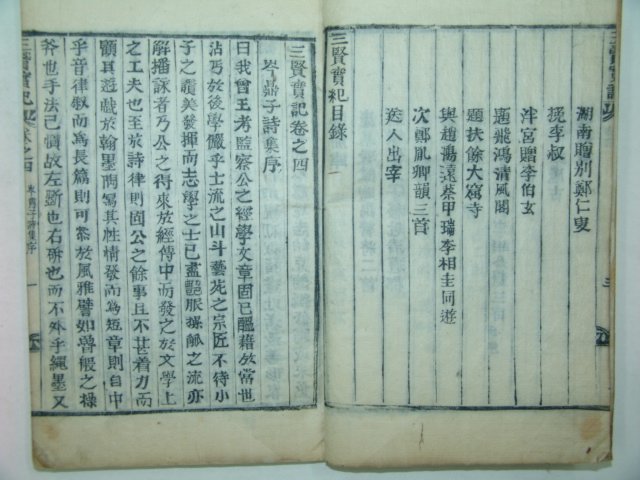 湖南贈別鄭仁叟
挽李叔
泮宮贈李伯玄
題飛鴻清風閣
題扶餘大寫寺
與趙鴻遠蔡甲瑞李相圭同遊
次鄭胤卿韻三首
送人出宰
三賢實紀目錄
三賢實記卷之四
岑鼎子詩集序
曰我曾王考監察公之經學文章固已醞藉於當世
沾丐於後學儼乎士流之山斗藝苑之宗匠不待小
子之贊美發揮而當之士已盡艶服操觚之流亦
解播詠者乃公之得來於經傳中而發之於文學上
之工夫也至於詩律則固公之餘事且不甚着力而
顧其遊戱於翰墨間寫其性情發而爲短章則自中
乎音律敍而爲長篇則可叅於風雅譬如曾般之操
斧也手法已慣故左斷也右斫也而不外乎繩墨又